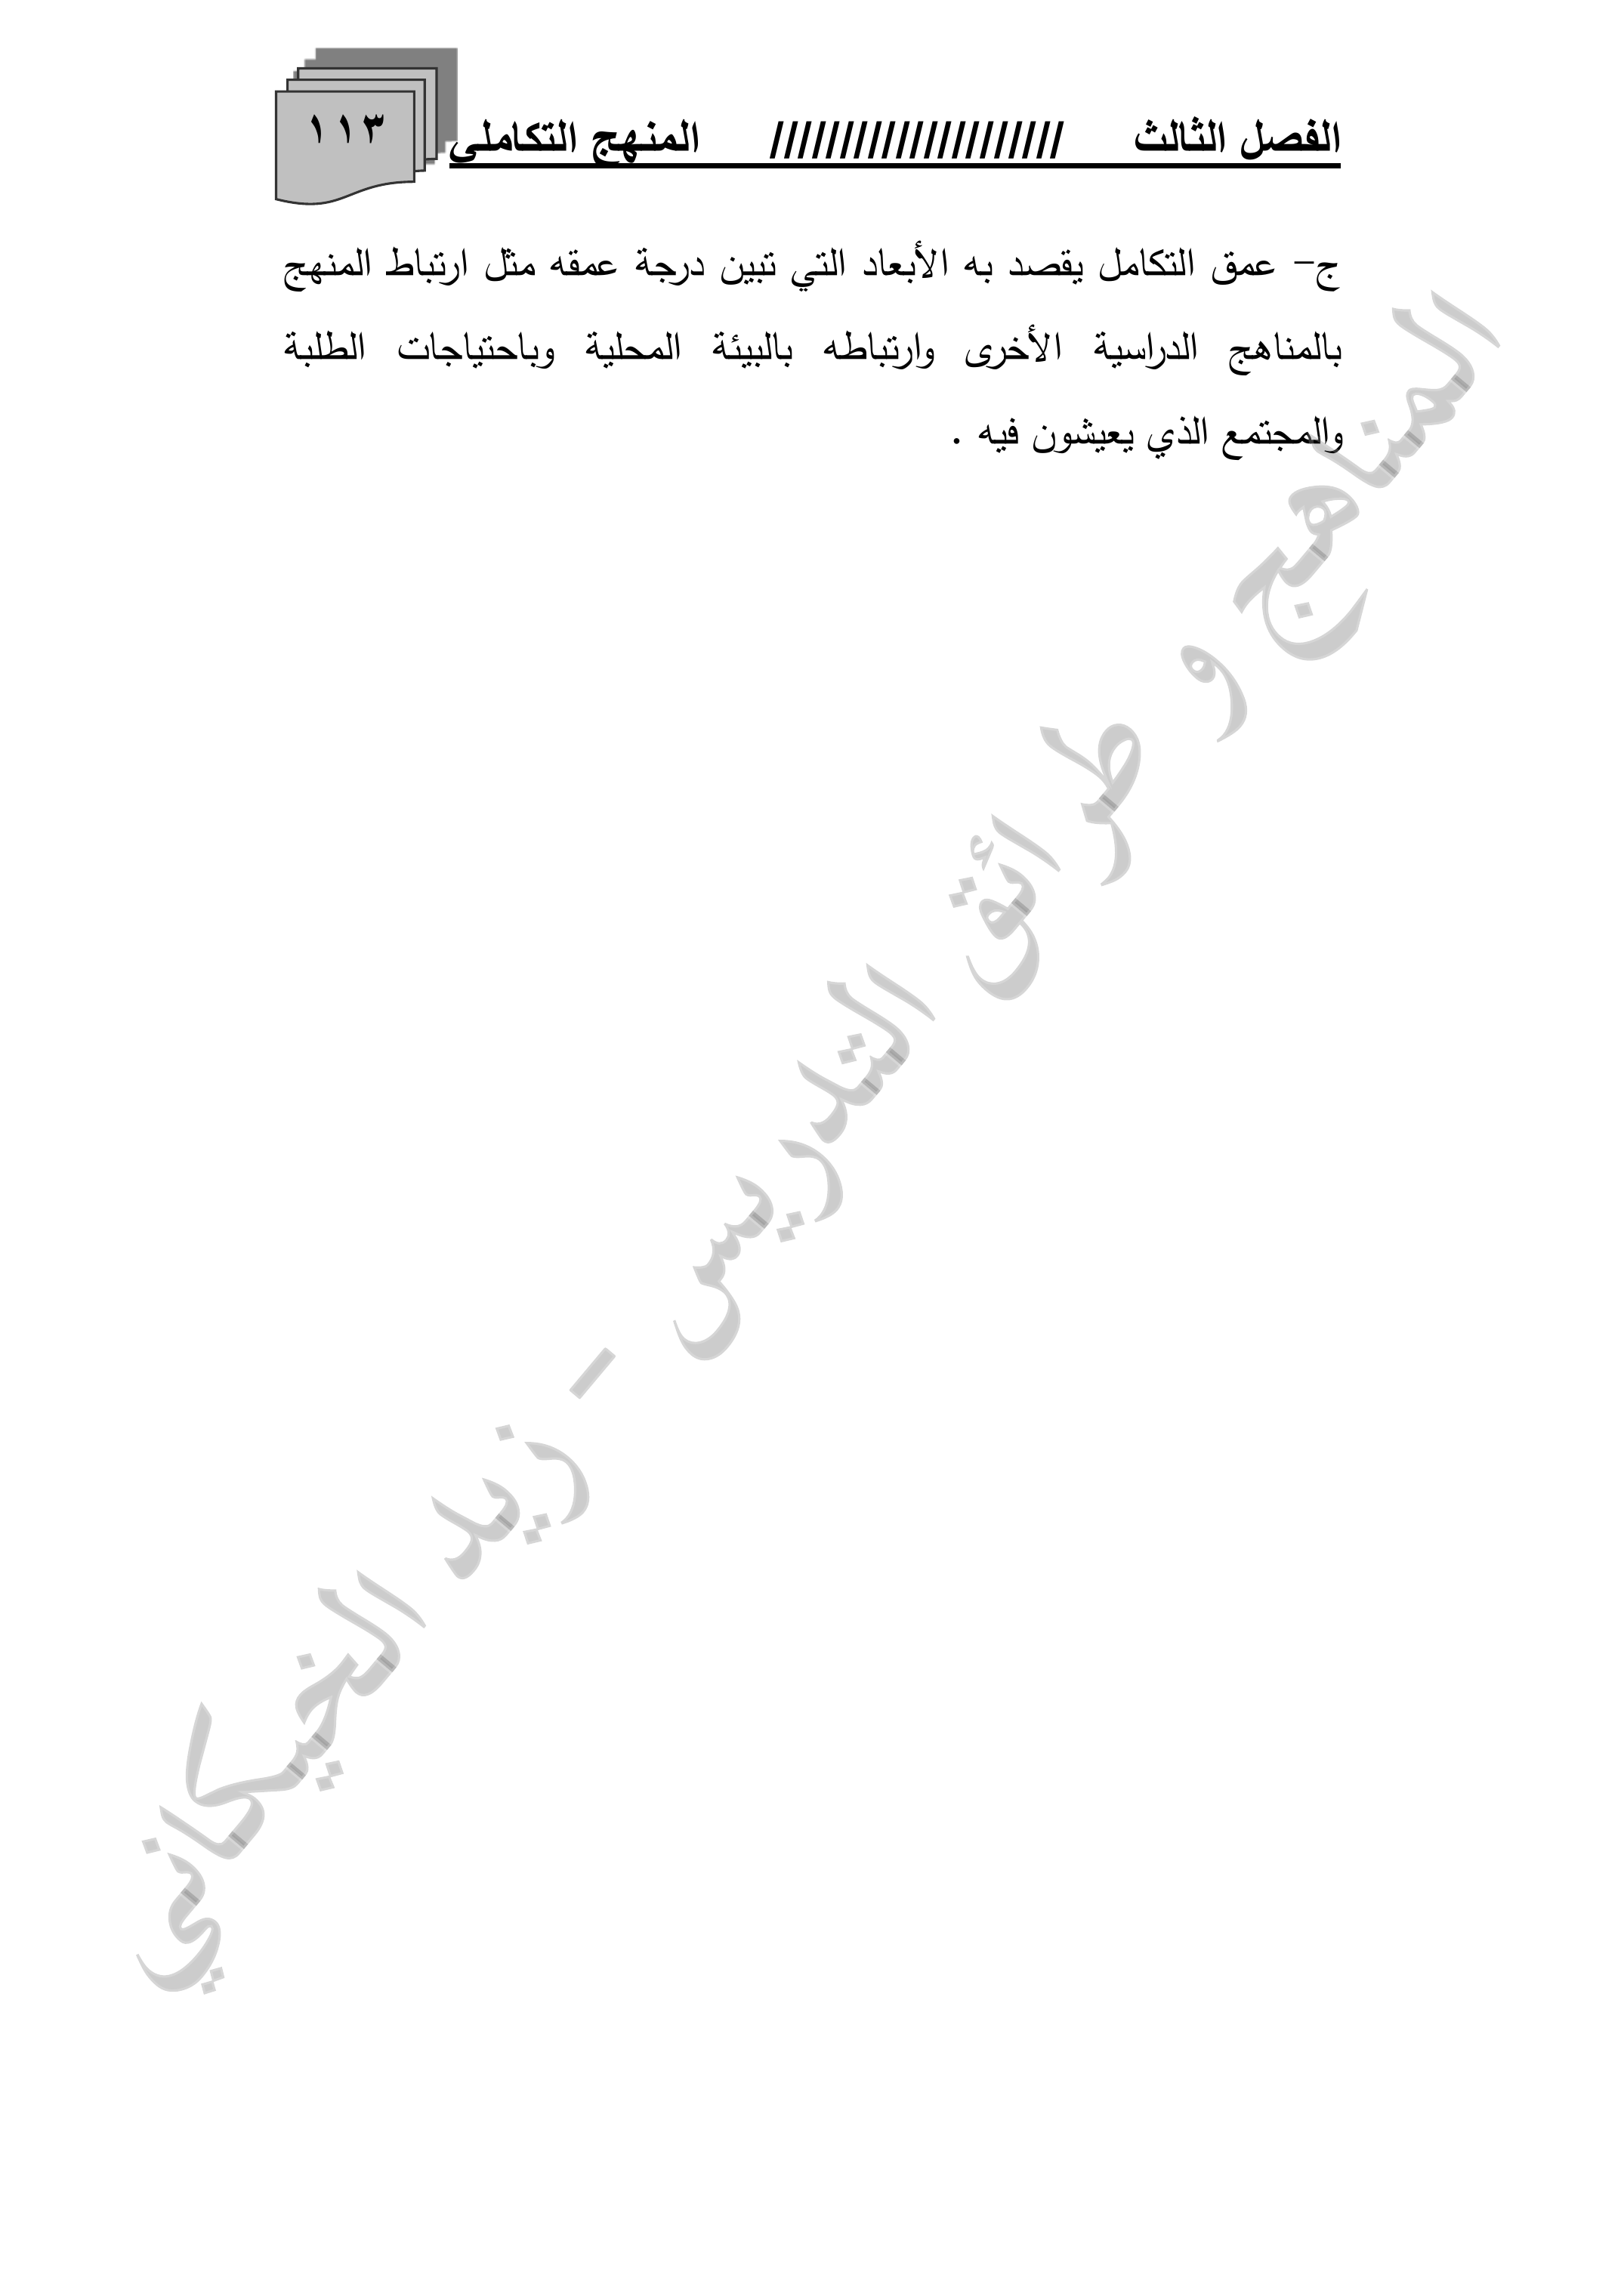 الفصل الثالث ///////////////////// المنهج التكاملي
١١٣
ج- عمق التكامل يقصد به الأبعاد التي تبين درجة عمقه مثل ارتباط المنهج
بالمناهج الدراسية الأخرى وارتباطه بالبيئة المحلية وباحتياجات الطلبة
والمجتمع الذي يعيشون فيه .
المناهج و طرائق التدريس - زيد الخيكاني